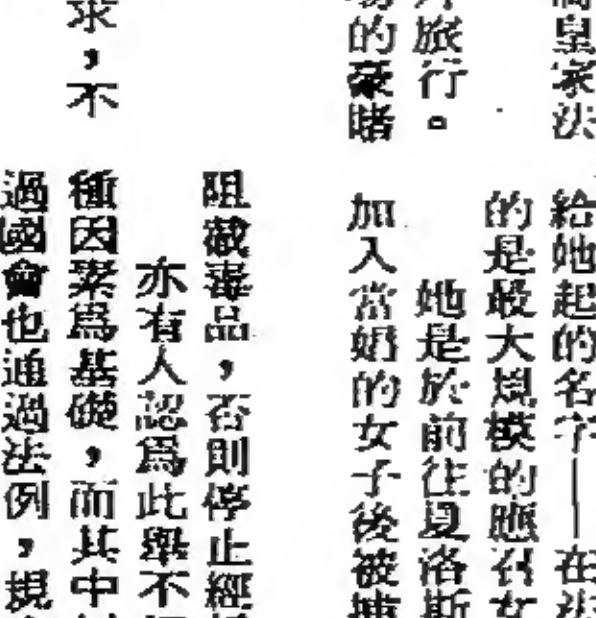 皇家法
旅行。
的豪賭
求，不
給她起的名字——在法
的是最大規模的應召女
她是於前往夏洛斯
加入當奶的女子後被捕
阻截毒品，否則停止經
亦有人認爲此舉不
種因素爲基礎，而其中
過國會也通過法例，規